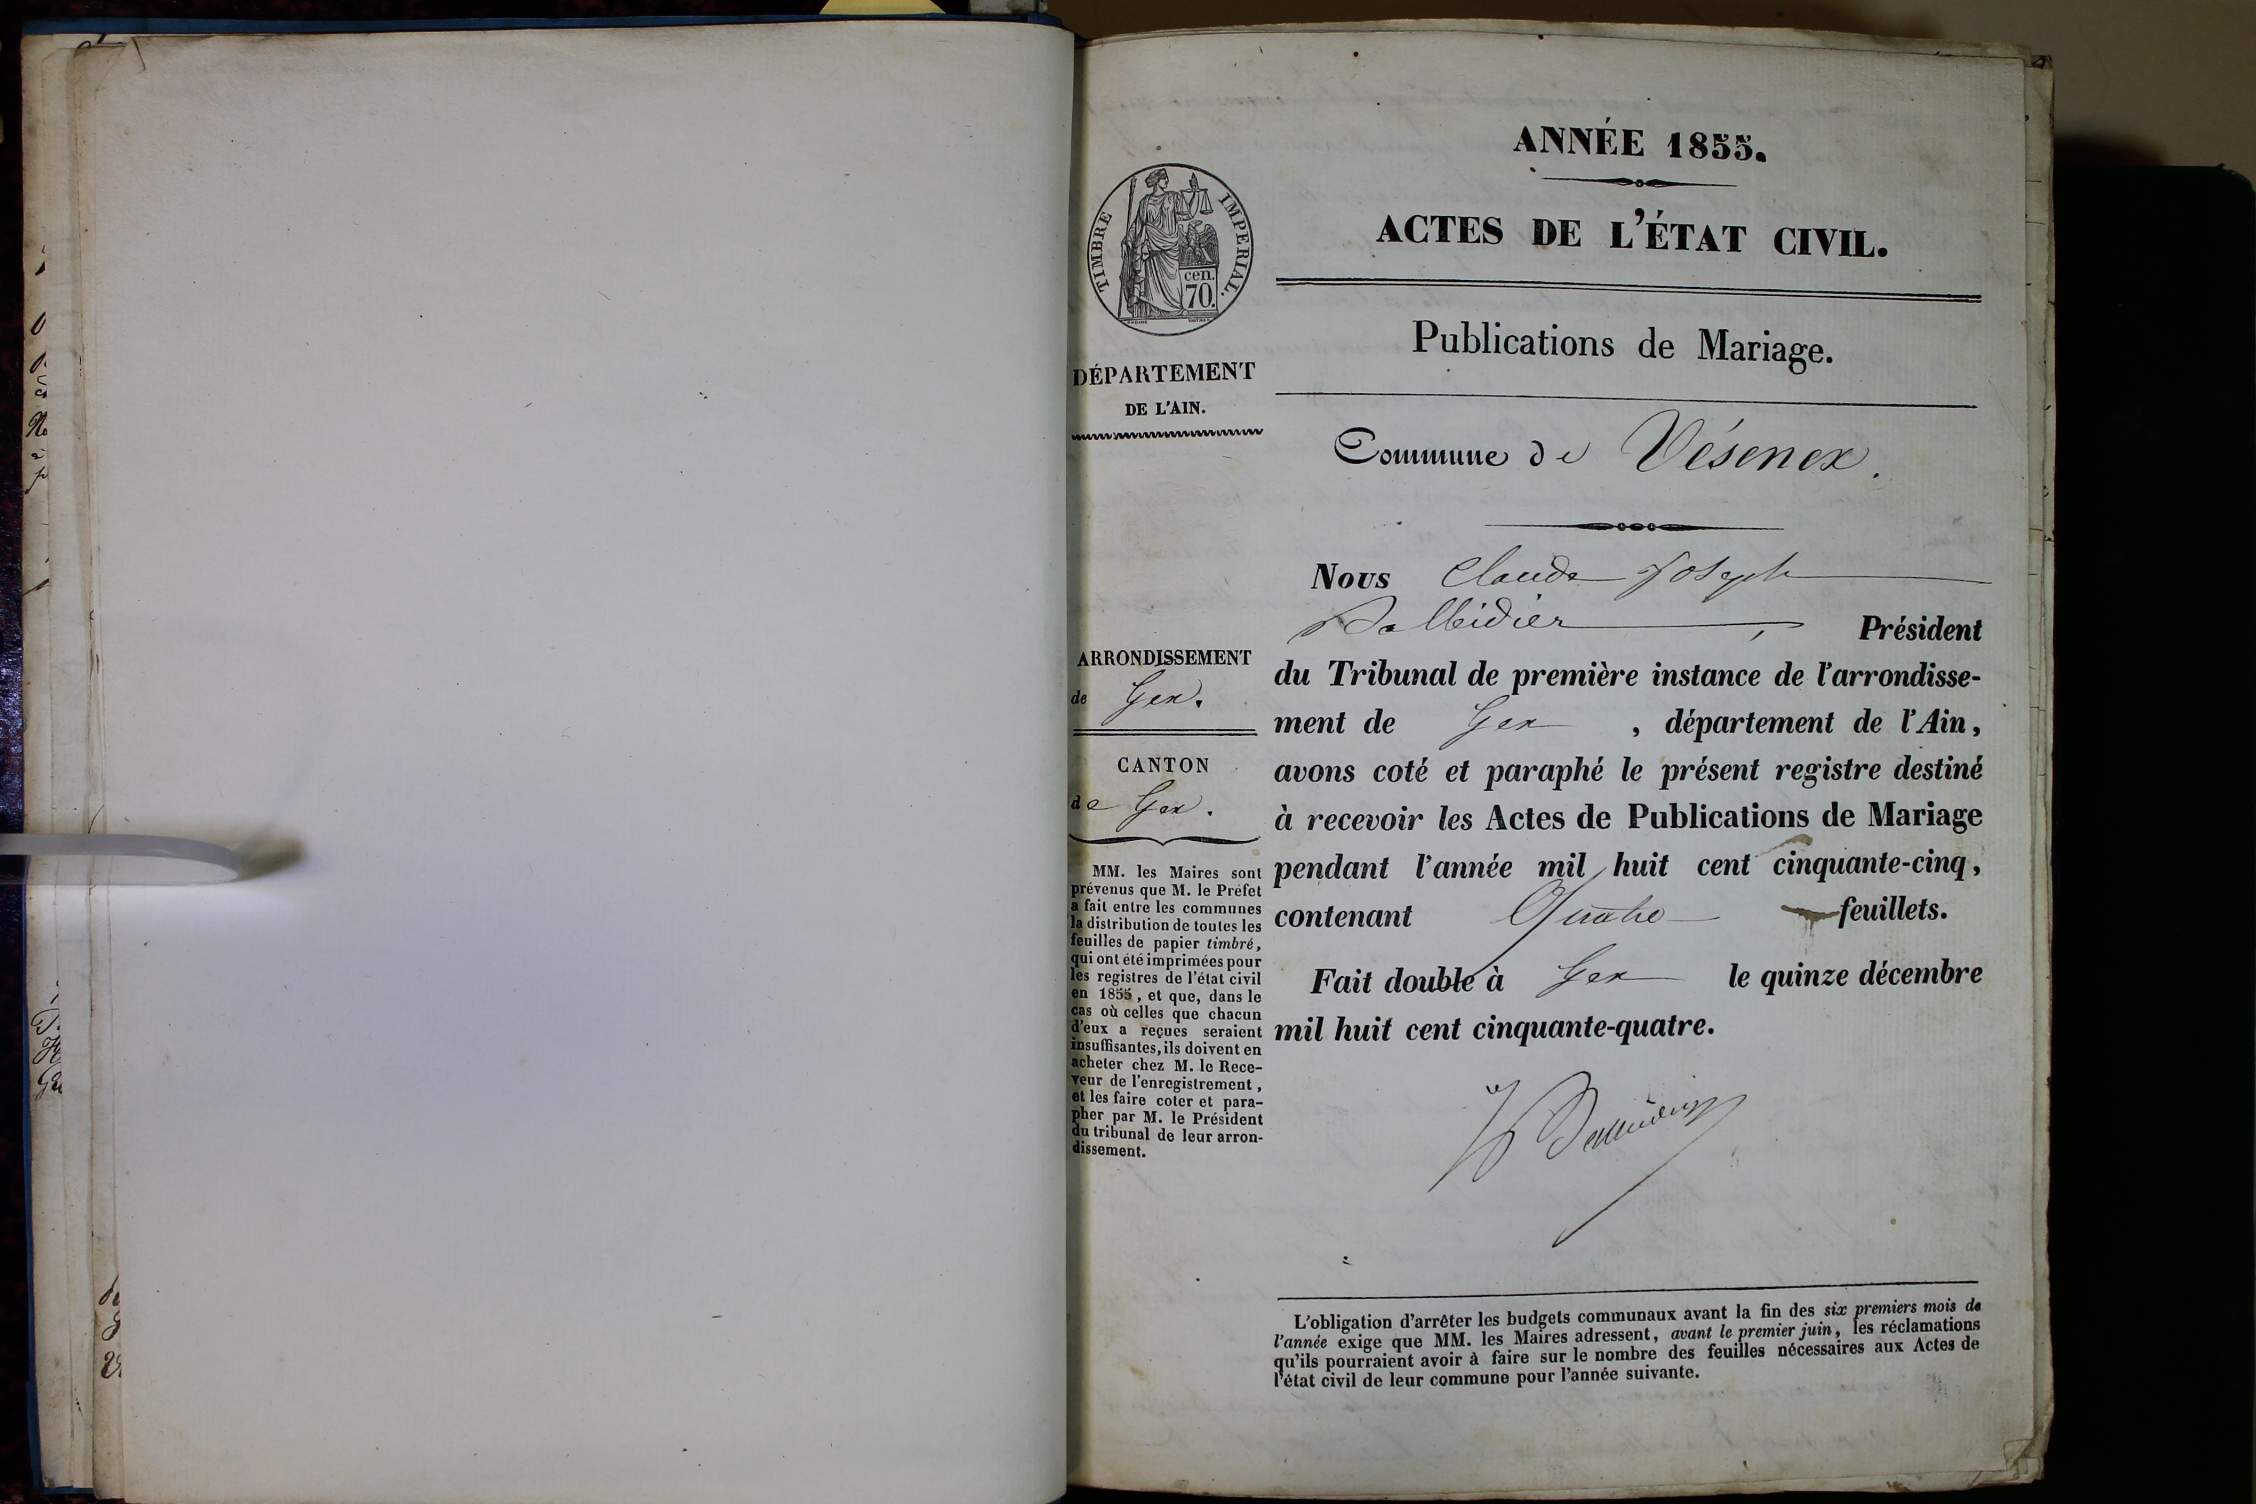 ANNÉE 1855.
ACTES DE L'ÉTAT CIVIL.
TIMBRE IMPERIAL.
cen.
70.
Publications de Mariage.
DÉPARTEMENT
DE L'AIN.
Commune de Vésenex.
Nous Claude Joseph
Président
ARRONDISSEMENT
de Gex.
CANTON
de Gex.
du Tribunal de première instance de l'arrondisse-
ment de Gex, département de l'Ain,
avons coté et paraphé le présent registre destiné
à recevoir les Actes de Publications de Mariage
pendant l'année mil huit cent cinquante-cinq,
contenant Quatre feuillets.
Fait double à Gex le quinze décembre
mil huit cent cinquante-quatre.
MM. les Maires sont
prévenus que M. le Préfet
a fait entre les communes
la distribution de toutes les
feuilles de papier timbré,
qui ont été imprimées pour
les registres de l'état civil
en 1855, et que, dans le
cas où celles que chacun
d'eux a reçues seraient
insuffisantes, ils doivent en
acheter chez M. le Rece-
veur de l'enregistrement,
et les faire coter et para-
pher par M. le Président
du tribunal de leur arron-
dissement.
L'obligation d'arrêter les budgets communaux avant la fin des six premiers mois de
l'année exige que MM. les Maires adressent, avant le premier juin, les réclamations
qu'ils pourraient avoir à faire sur le nombre des feuilles nécessaires aux Actes de
l'état civil de leur commune pour l'année suivante.